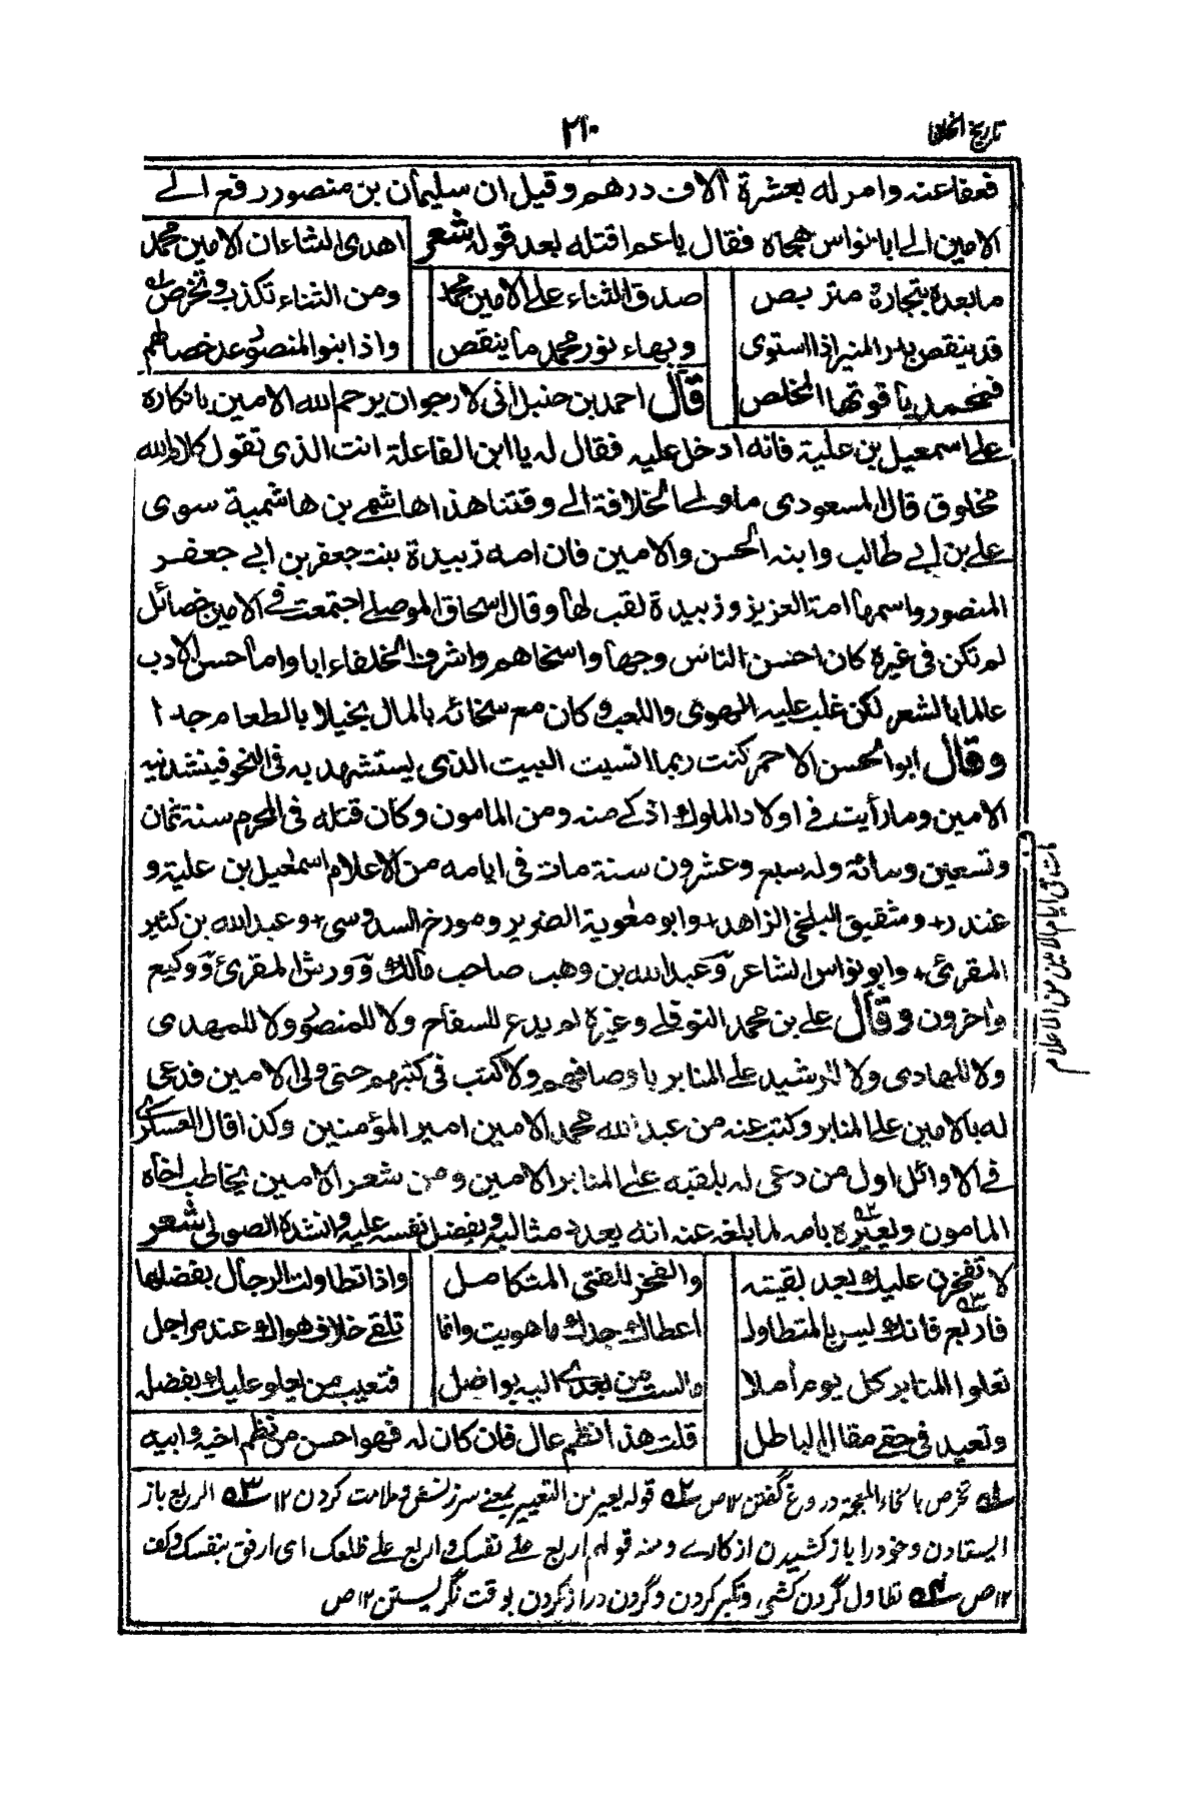 تاريخ الخلفا
٢١٠
فعفا عنه وامر له بعشرة آلاف درهم وقيل ان سليمان بن منصور رفع الے
الامين الے ابا نواس هجاه فقال يا عم اقتله بعد قوله شعر اهدى الثناء ان الامين محمد
ما بعده بتجارة متربص صدق الثناء على الامين محمد ومن الثناء تكذب وتخرص
قد ينقص بدر المنير اذا استوى وبهاء نور محمد ما ينقص واذا ابنو المنصور عد خصالهم
فمحمد ياقوتها المخلص قال احمد بن حنبل انى لارجو ان يرحم الله الامين بانكاره
على اسمعيل بن علية فانه ادخل عليه فقال له يا ابن الفاعلة انت الذى تقول كلام الله
مخلوق قال المسعودى ما ولى الخلافة الے وقتنا هذا هاشمى بن هاشمية سوى
على بن ابى طالب وابنه الحسن والامين فان امه زبيدة بنت جعفر بن ابى جعفر
المنصور واسمها امة العزيز وزبيدة لقب لها وقال اسحاق الموصلى اجتمعت فى الامين خصائل
لم تكن فى غيره كان احسن الناس وجها واسخاهم واشرف الخلفاء ابا واما حسن الادب
عالما بالشعر لكن غلب عليه الهوى واللعب وكان مع سخائه بالمال بخيلا بالطعام جدا
وقال ابو الحسن الاحمر كنت ربما انسيت البيت الذى يستشهد به فى النحو فينشدنيه
الامين وما رأيت فى اولاد الملوك اذكى منه ومن المامون وكان قتله فى المحرم سنة ثمان
وتسعين ومائة وله سبع وعشرون سنة مات فى ايامه من الاعلام اسمعيل بن علية و
غندر+ و شقيق البلخى الزاهد+ وابو معوية الضرير و مورخ السدوسى+ وعبد الله بن كثير
المقرئ+ وابو نواس الشاعر و عبد الله بن وهب صاحب مالك و ورش المقرئ و وكيع
واخرون وقال على بن محمد النوفلى وغيره لم يدع للسفاح ولا للمنصور ولا للمهدى
ولا للهادى ولا للرشيد على المنابر باوصافهم ولا كتب فى كتبهم حتى ولى الامين فدعى
له بالامين على المنابر وكتب عنه من عبد الله محمد الامين امير المؤمنين وكذا قال العسكرى
فى الاوائل اول من دعى له بلقبه على المنابر الامين ومن شعر الامين يخاطب اخاه
المامون ويعيره بامه لما بلغه عنه انه يعدد مثالبه ويفضل نفسه عليه وانشده الصولى شعر
لا تفخرن عليك بعد بقيته والفخر للفتى المتكامل واذا تطاولت الرجال بفضلها
فاربع فانك ليس بالمتطاول اعطاك جدك ما هويت وانما تلقى خلاف هواك عند مراجل
تعلو المنابر كل يوم آملا ما لست من بعدى اليه بواصل فتعيب من يعلو عليك بفضله
وتعيد فى حقى مقال الباطل قلت هذا نظم عال فان كان له فهو احسن من نظم اخيه وابيه
تخرص بالخاء المعجمة دروغ گفتن ١٢ ص قوله يعير من التعيير بمعنے سرزنش و ملامت كردن ١٢ الربع باز
ايستادن و خود را باز كشيدن از كارے ومنه قولهم اربع على نفسك واربع على ظلعك اى ارفق بنفسك وكف
١٢ ص تطاول گردن كشى و تكبر كردن و گردن دراز كردن بوقت نگريستن ١٢ ص
مات فى ايام الامين من الاعلام